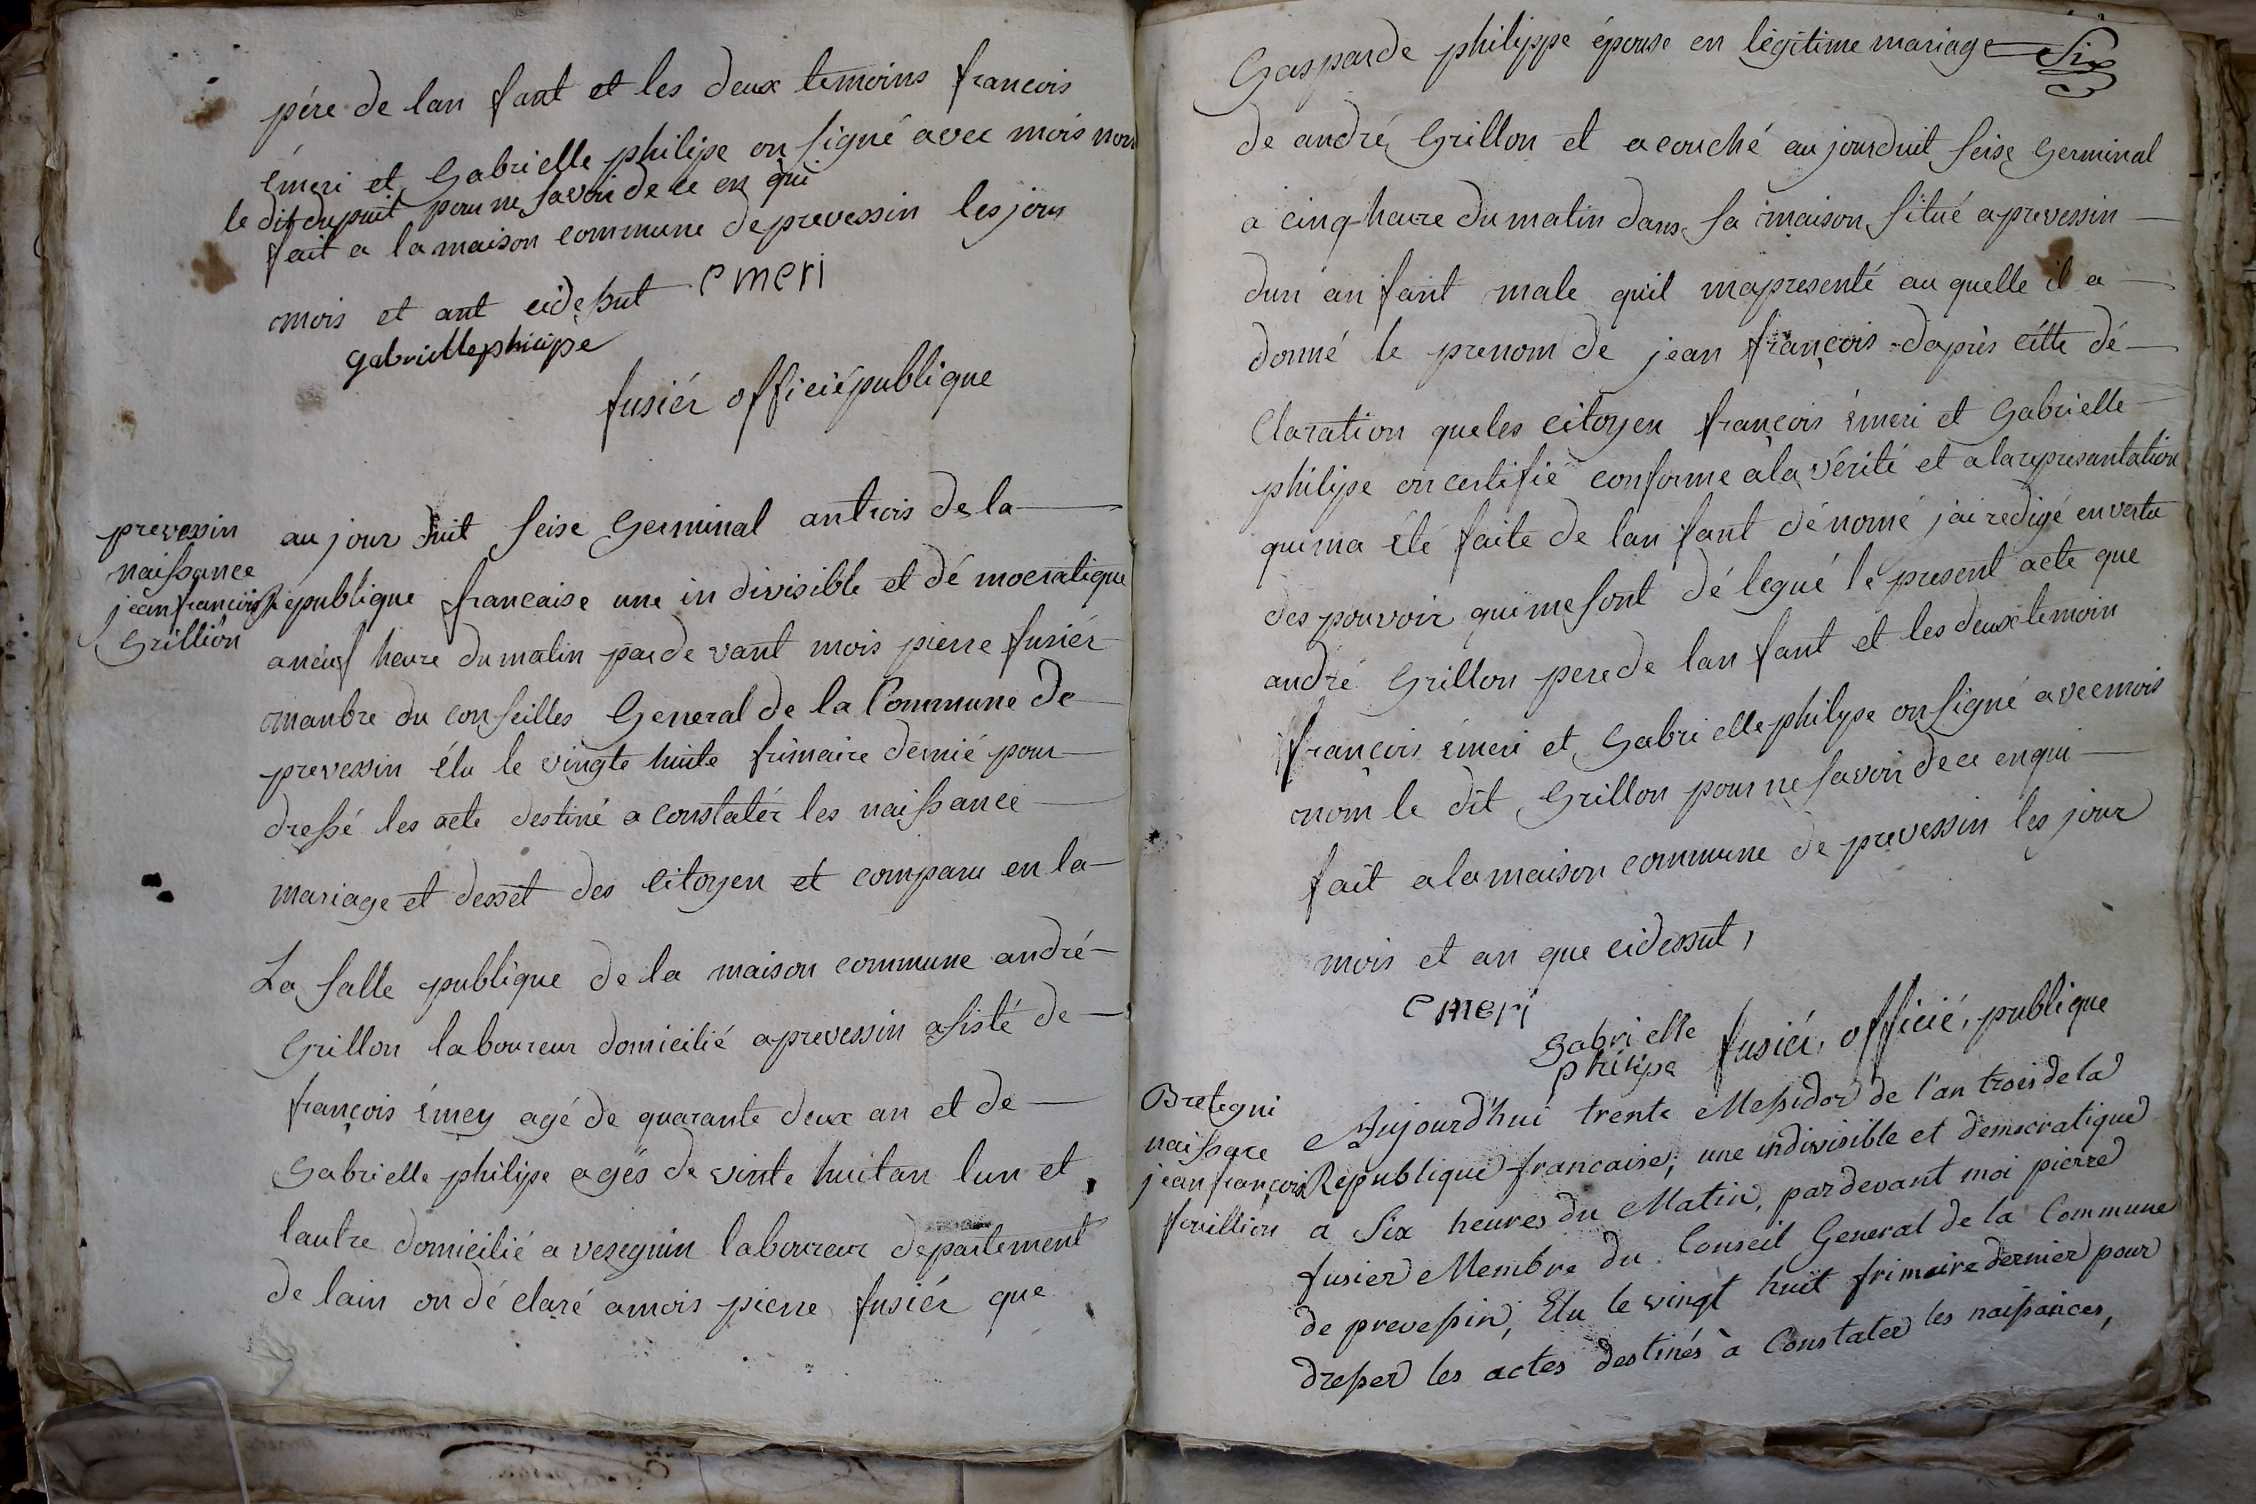 pére de lan fant et les deux temoins francois
émeri et Gabrielle philipe on signé avec mois non
le dit dupuit pour ne savoir de ce en qui
fait a la maison commune de prevessin les jour
mois et ant cidessut emeri
gabrielle philipe
fusiér officié publique
prevessin
naissance
jean francois
Grillion
au jour duit seise Germinal an trois de la
République francaise une in divisible et dé mocratique
a neuf heure du matin par de vant mois pierre fusiér
manbre du conseilles General de la Commune de
prevessin élu le vingte huite frimaire dernié pour
dressé les acte destiné a constatér les naissance
mariage et desset des citoyen et comparu en la
La salle publique de la maison commune andré
Grillon laboureur domicilié a prevessin asisté de
françois émey agé de quarante deux an et de
Gabrielle philipe agés de vinte huit an lun et
lautre domicilié a vesegnin laboureur departement
de lain on dé claré a mois pierre fusiér que
Gasparde philippe épouse en légitime mariage Six
de andré Grillon et acouché au jourduit seise Germinal
a cinq heure du matin dans sa maison situé a prevessin
dun an fant male quil mapresenté au quelle il a
donné le prenom de jean françois daprès cétte dé
claration que les citoyen françois émeri et Gabrielle
philipe on certifié conforme a la vérité et a la represantation
qui ma été faite de lan fant dé nomé jai redigé en vertu
des pouvoir qui me sont dé legué le present acte que
andré Grillon pere de lan fant et les deux temoin
françois émeri et Gabrielle philype on signé avec mois
nom le dit Grillon pour ne savoir de ce en qui
fait a la maison commune de prevessin les jour
mois et an que cidessut,
emeri
Gabrielle
philipe fusiér, officié, publique
Bretegni
naissace
jean françois
fouillion
Aujourd'hui trente Messidor de l'an trois de la
Republique francaise, une indivisible et democratique
a Six heures du Matin, pardevant moi pierre
fusier Membre du Conseil General de la Commune
de prevessin, Elu le vingt huit frimaire dernier pour
dresser les actes destinés à Constater les naissances,